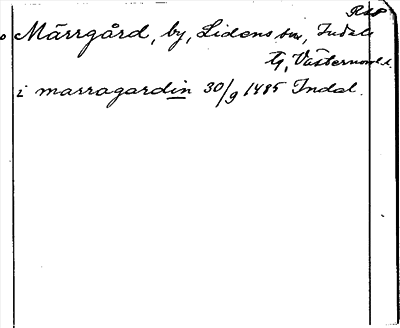 RAP
Märrgård, by, Lidens sn, Indals
tg, Västernorrl. l.
i marragardin 30/9 1485 Indal.